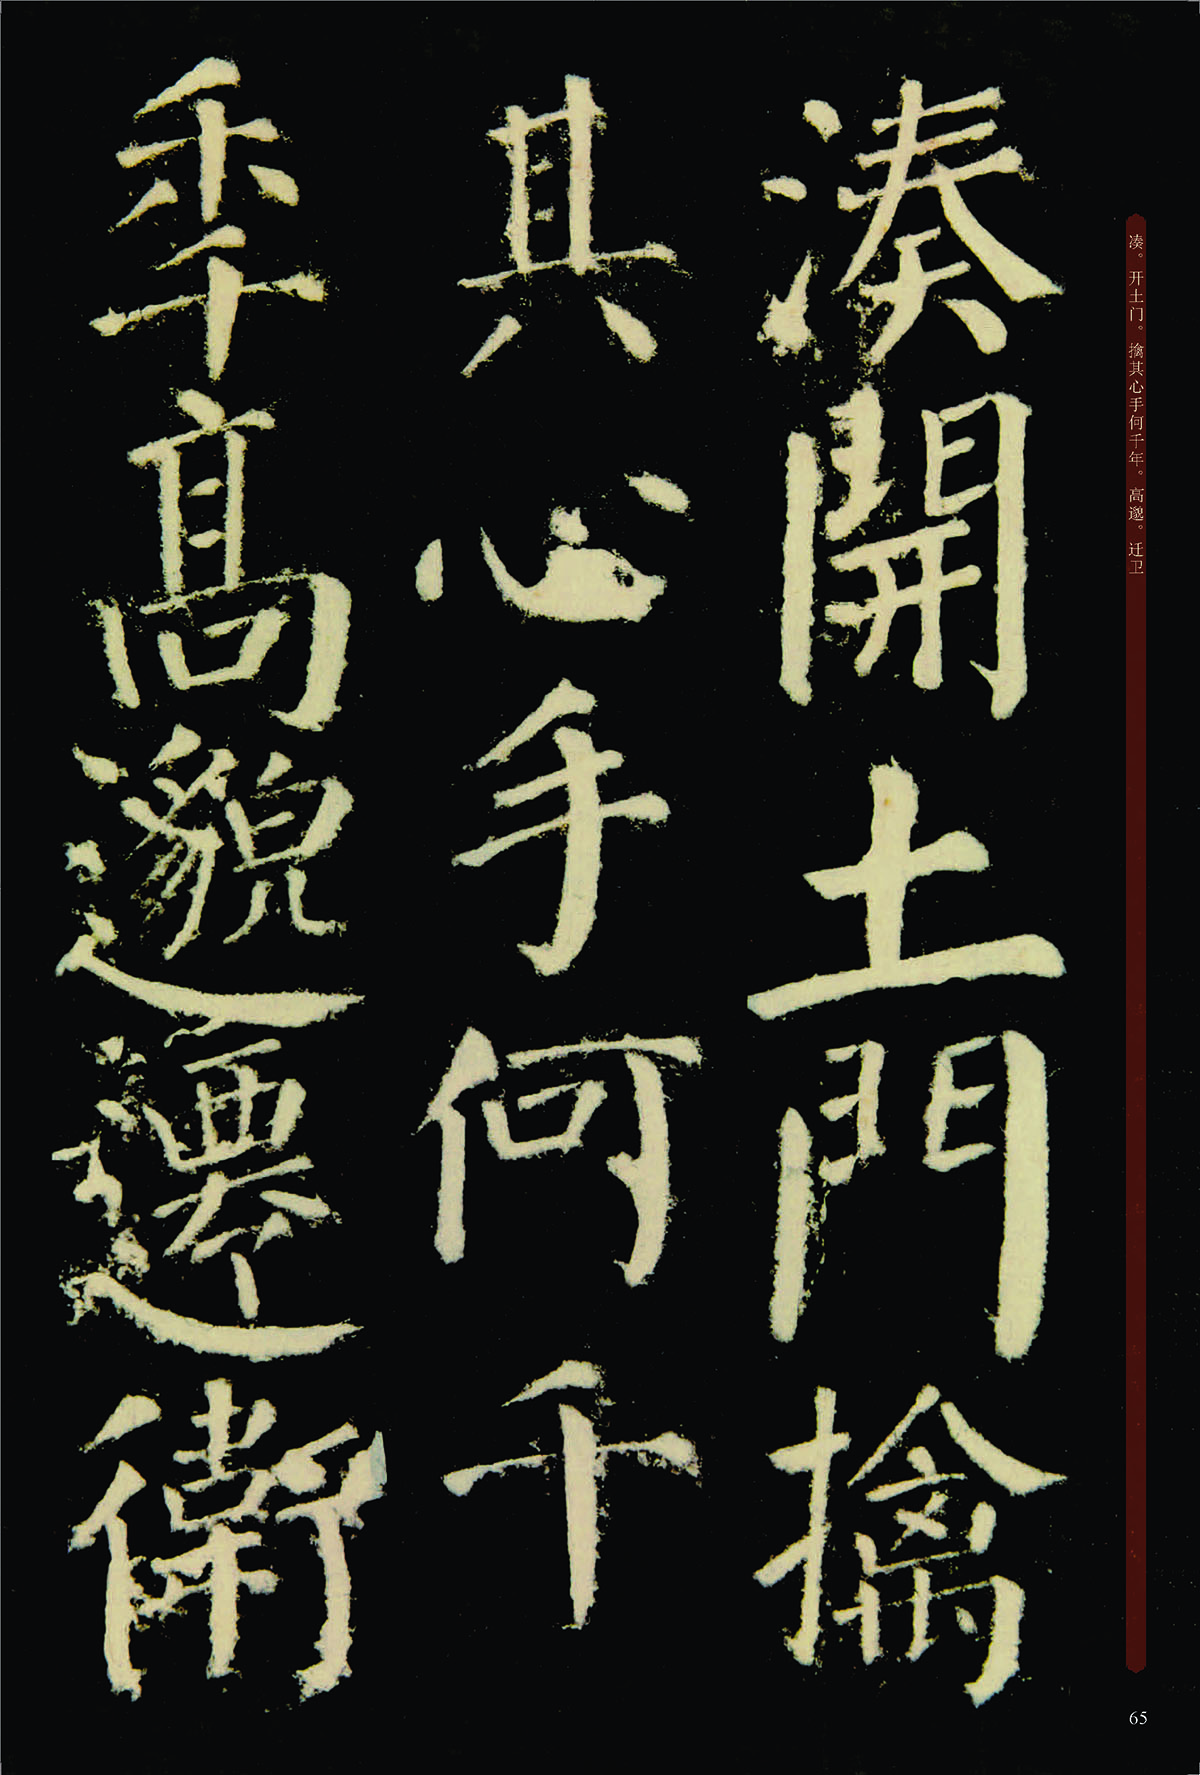 凑。开土门。擒其心手何千年。高邈。迁卫
湊開土門擒
其心手何千
秊高邈遷衛
65